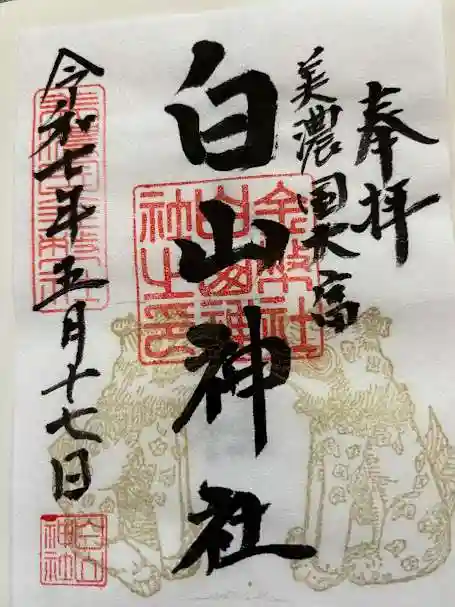 奉拝
美濃国大高
白山神社
令和七年五月十七日
白山
神社